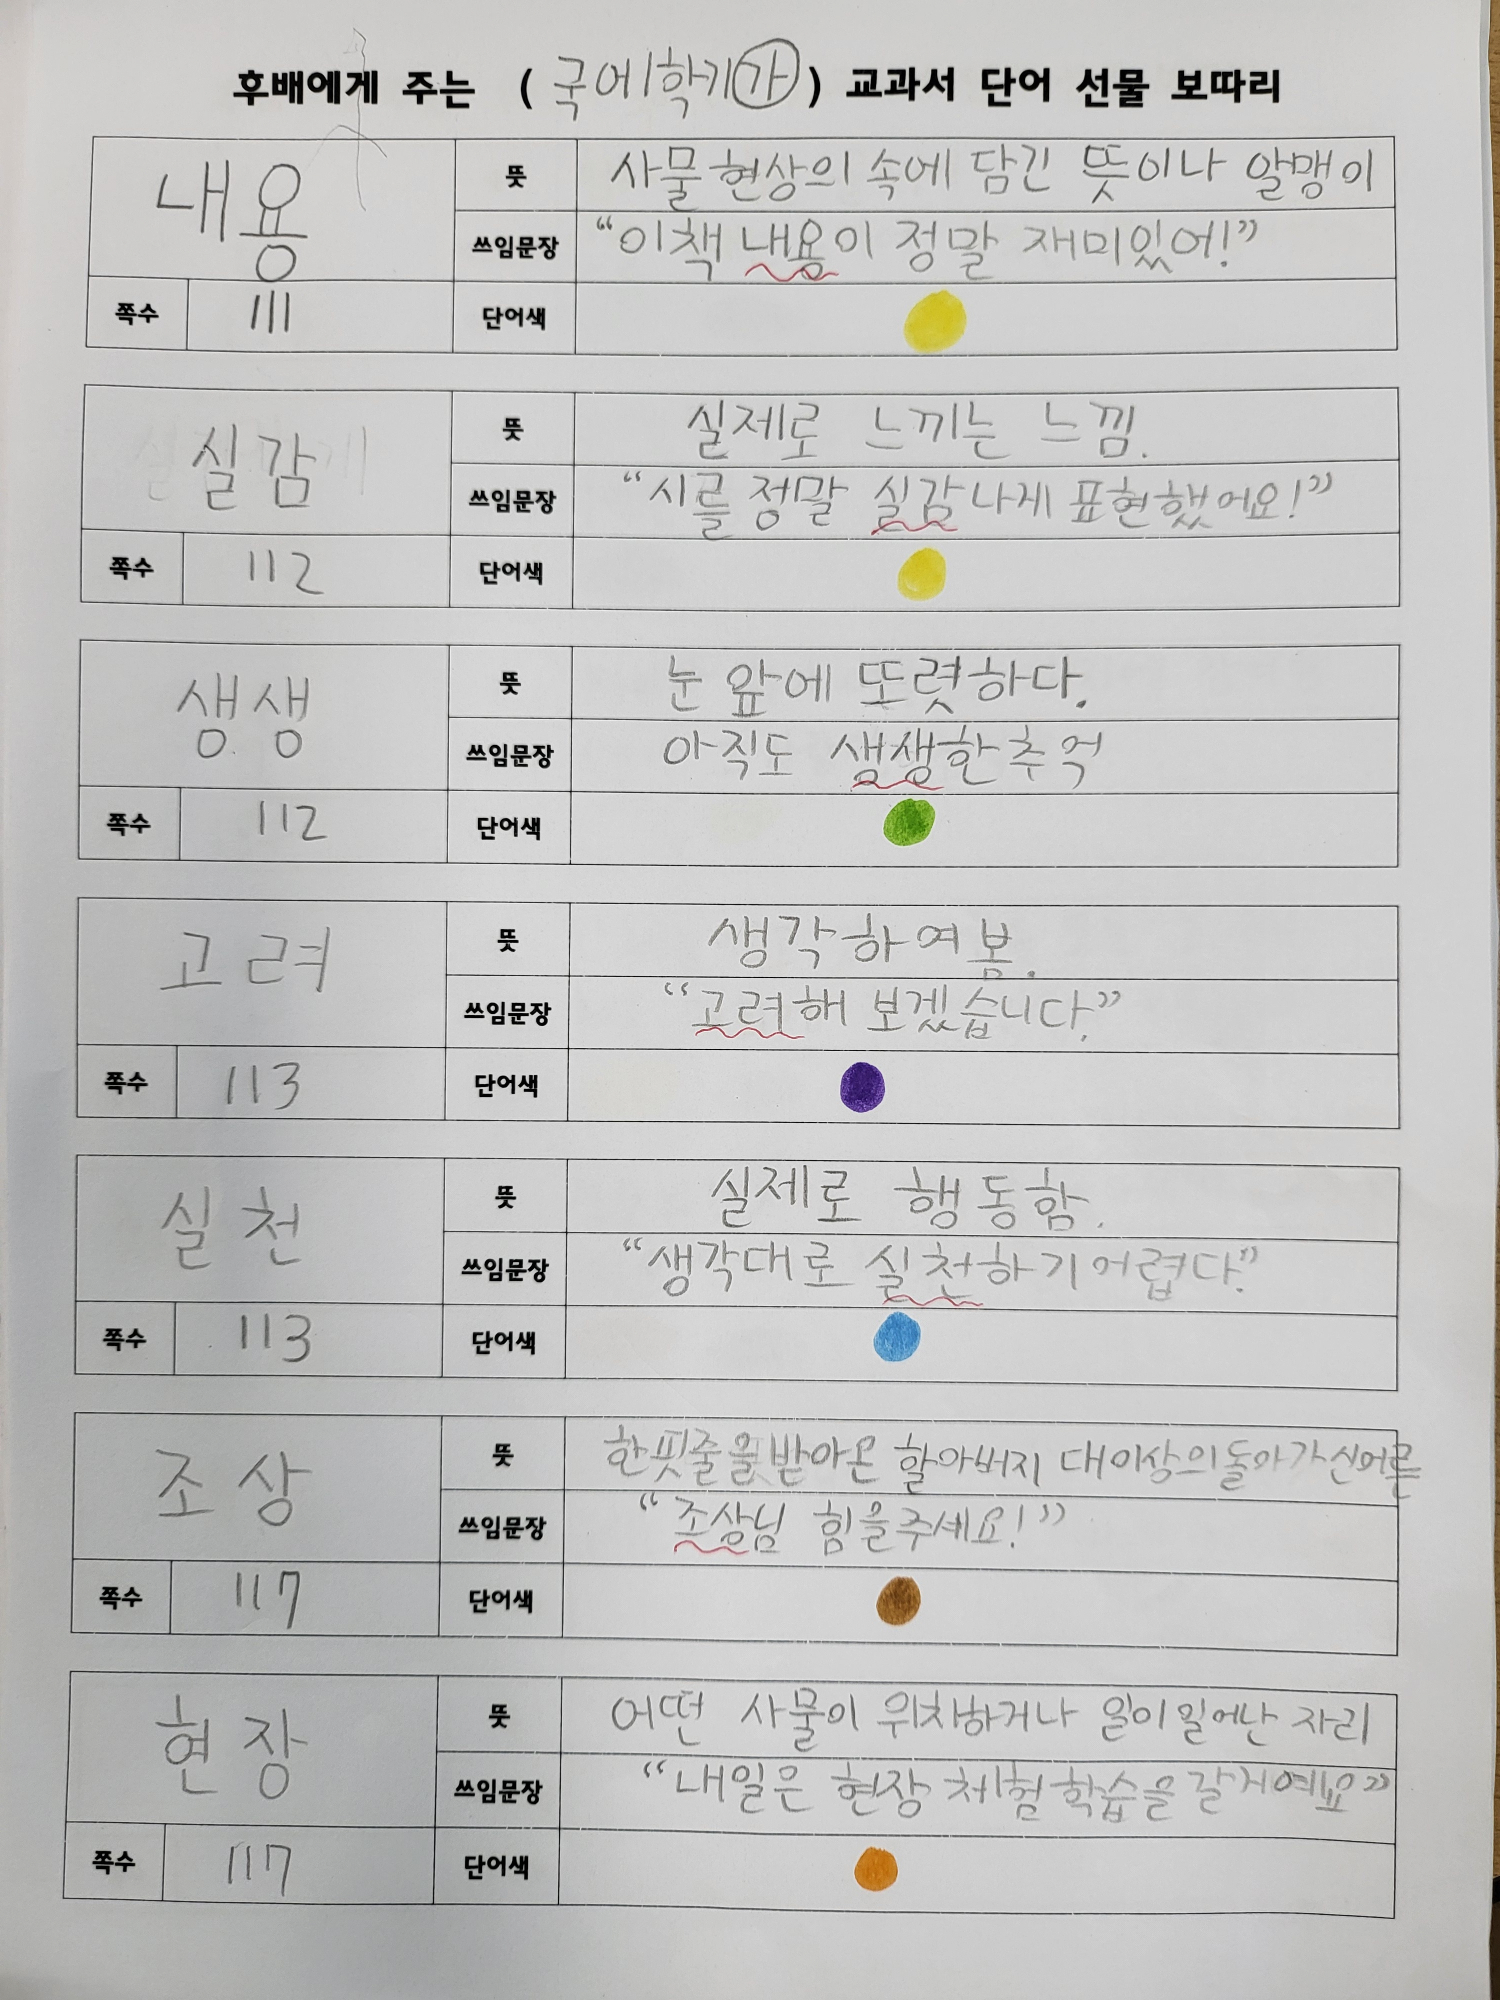 후배에게 주는 ( 국어1학기㉮ ) 교과서 단어 선물 보따리
내용 뜻 사물현상의 속에 담긴 뜻이나 알맹이
쓰임문장 “이책 내용이 정말 재미있어!”
쪽수 111 단어색
실감 뜻 실제로 느끼는 느낌.
쓰임문장 “시를 정말 실감나게 표현했어요!”
쪽수 112 단어색
생생 뜻 눈 앞에 또렷하다.
쓰임문장 아직도 생생한추억
쪽수 112 단어색
고려 뜻 생각하여봄.
쓰임문장 “고려해 보겠습니다.”
쪽수 113 단어색
실천 뜻 실제로 행동함.
쓰임문장 “생각대로 실천하기어렵다.”
쪽수 113 단어색
조상 뜻 한핏줄을받아온 할아버지 대이상의돌아가신어른
쓰임문장 “조상님 힘을주세요!”
쪽수 117 단어색
현장 뜻 어떤 사물이 위치하거나 일이일어난 자리
쓰임문장 “내일은 현장 체험학습을갈거예요”
쪽수 117 단어색